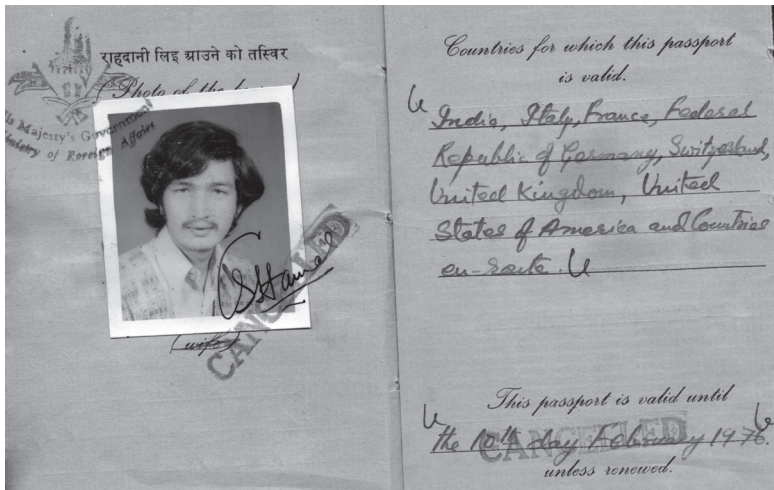 राहदानी लिइ ग्राउने को तस्विर
Photo of the
His Majesty's Government
Ministry of Foreign Affairs
CANCELLED
(wife)
Countries for which this passport
is valid.
India, Italy, France, Federal
Republic of Germany, Switzerland,
United Kingdom, United
States of America and Countries
en-route.
This passport is valid until
the 10th day February 1976.
CANCELLED
unless renewed.